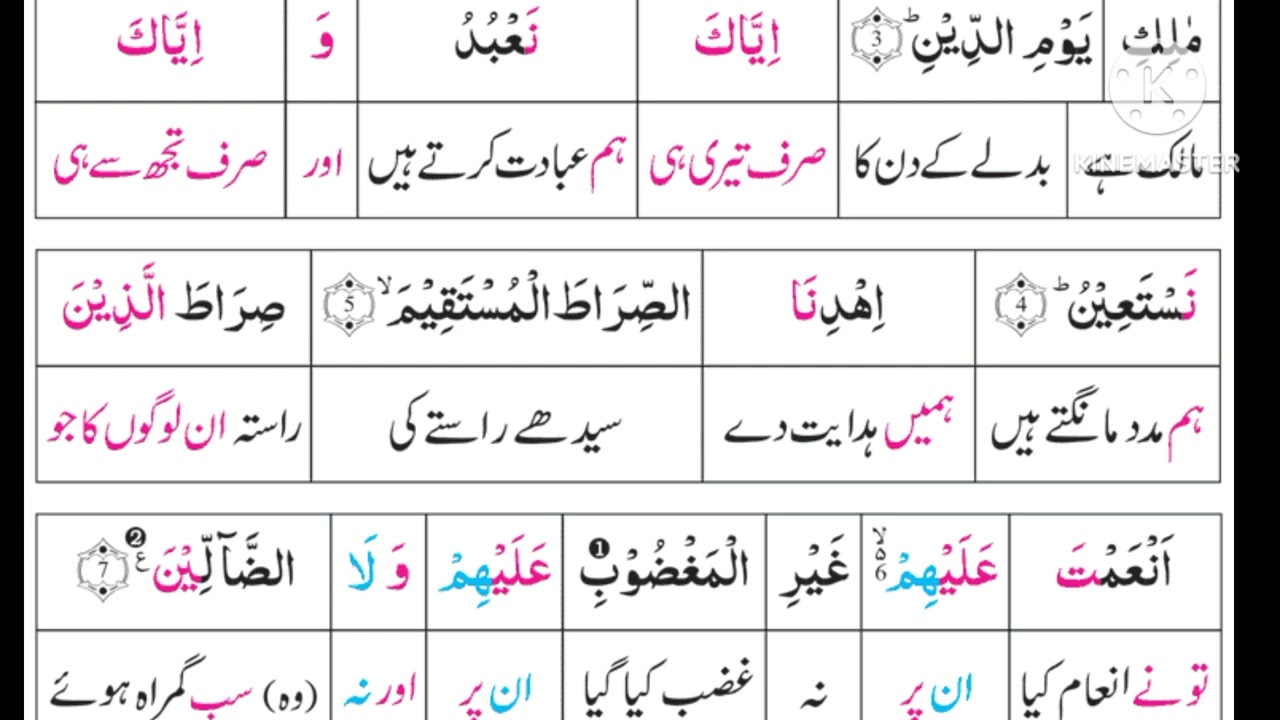 مٰلِكِ يَوْمِ الدِّيْنِ ؕ 3 اِيَّاكَ نَعْبُدُ وَ اِيَّاكَ
مالک ہے بدلے کے دن کا صرف تیری ہی ہم عبادت کرتے ہیں اور صرف تجھ سے ہی
KINEMASTER
نَسْتَعِيْنُ ؕ 4 اِهْدِنَا الصِّرَاطَ الْمُسْتَقِيْمَ ۙ 5 صِرَاطَ الَّذِيْنَ
ہم مدد مانگتے ہیں ہمیں ہدایت دے سیدھے راستے کی راستہ ان لوگوں کا جو
اَنْعَمْتَ عَلَيْهِمْ ۙ۬ 6 غَيْرِ الْمَغْضُوْبِ ❶ عَلَيْهِمْ وَ لَا الضَّآلِّيْنَ ❷ ع 7
تو نے انعام کیا ان پر نہ غضب کیا گیا ان پر اور نہ (وہ) سب گمراہ ہوئے